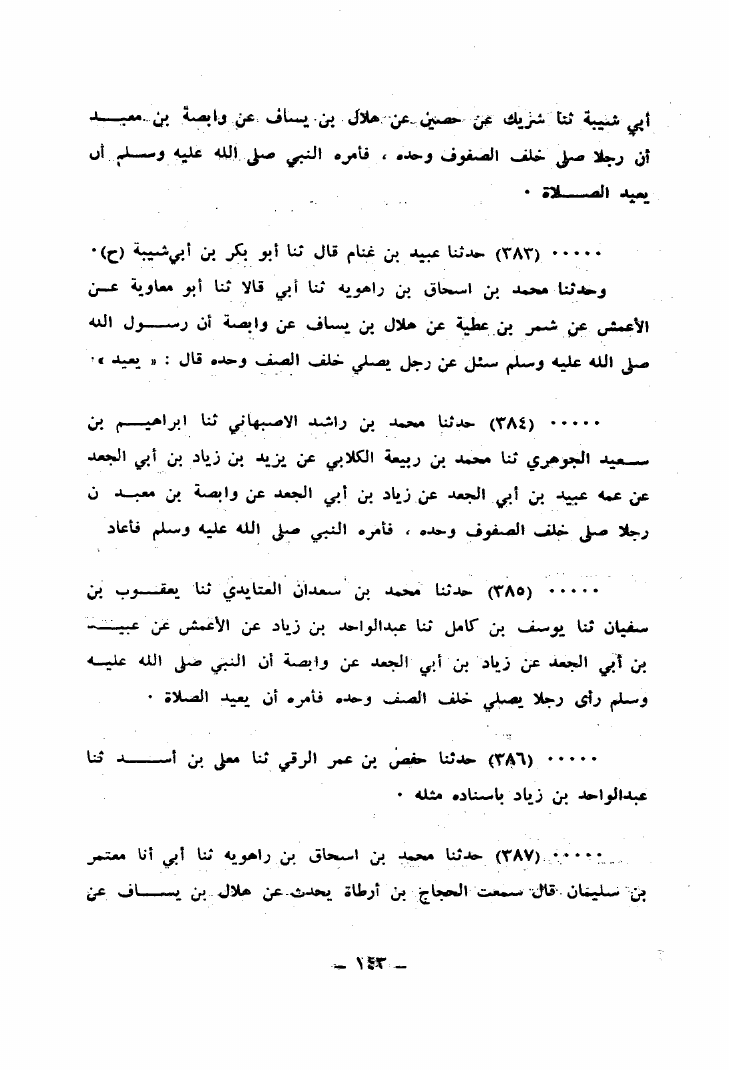 أبي شيبة ثنا شريك عن حصين عن هلال بن يساف عن وابصة بن معبد
أن رجلا صلى خلف الصفوف وحده ، فأمره النبي صلى الله عليه وسلم أن
يعيد الصلاة ٠
٠٠٠٠٠ (٣٨٣) حدثنا عبيد بن غنام قال ثنا أبو بكر بن أبي شيبة (ح)٠
وحدثنا محمد بن اسحاق بن راهويه ثنا أبي قالا ثنا أبو معاوية عن
الأعمش عن شمر بن عطية عن هلال بن يساف عن وابصة أن رسول الله
صلى الله عليه وسلم سئل عن رجل يصلي خلف الصف وحده قال : « يعيد »٠
٠٠٠٠٠ (٣٨٤) حدثنا محمد بن راشد الاصبهاني ثنا ابراهيم بن
سعيد الجوهري ثنا محمد بن ربيعة الكلابي عن يزيد بن زياد بن أبي الجعد
عن عمه عبيد بن أبي الجعد عن زياد بن أبي الجعد عن وابصة بن معبد ن
رجلا صلى خلف الصفوف وحده ، فأمره النبي صلى الله عليه وسلم فأعاد
٠٠٠٠٠ (٣٨٥) حدثنا محمد بن سعدان العتايدي ثنا يعقوب بن
سفيان ثنا يوسف بن كامل ثنا عبدالواحد بن زياد عن الأعمش عن عبيد
بن أبي الجعد عن زياد بن أبي الجعد عن وابصة أن النبي صلى الله عليه
وسلم رأى رجلا يصلي خلف الصف وحده فأمره أن يعيد الصلاة ٠
٠٠٠٠٠ (٣٨٦) حدثنا حفص بن عمر الرقي ثنا معلى بن أسد ثنا
عبدالواحد بن زياد باسناده مثله ٠
٠٠٠٠٠ (٣٨٧) حدثنا محمد بن اسحاق بن راهويه ثنا أبي أنا معتمر
بن سليمان قال سمعت الحجاج بن أرطاة يحدث عن هلال بن يساف عن
– ١٤٣ –